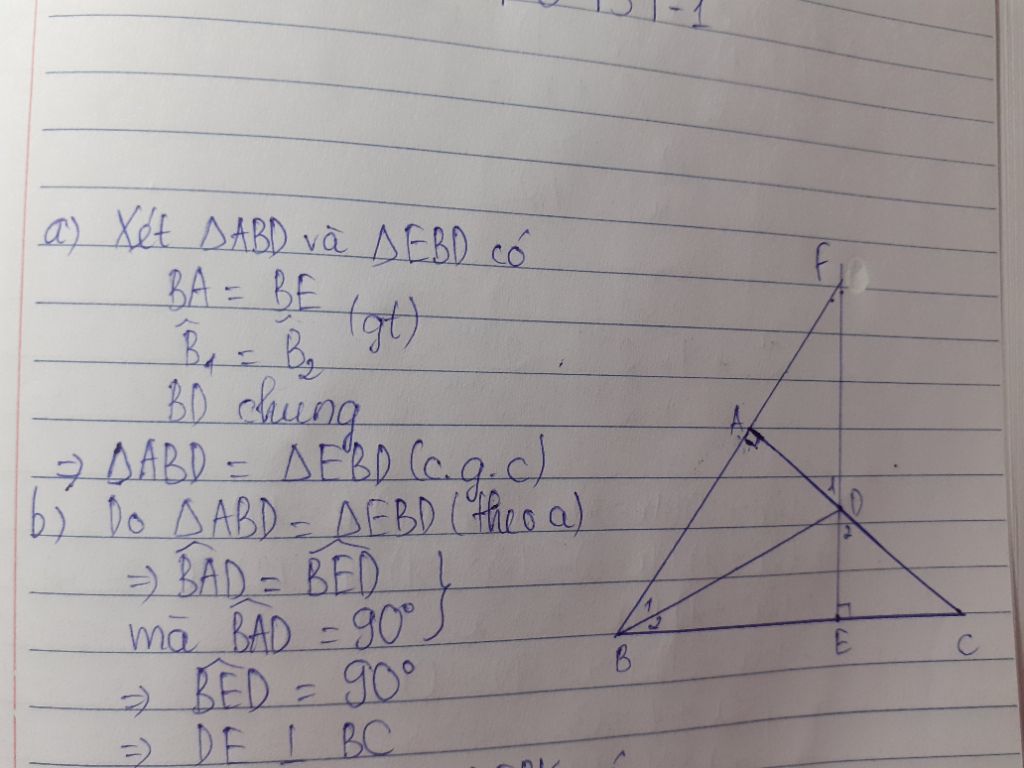 a) Xét ΔABD và ΔEBD có
BA = BE
(gt)
B̂₁ = B̂₂
BD chung
⇒ ΔABD = ΔEBD (c.g.c)
b) Do ΔABD = ΔEBD (theo a)
⇒ BAD = BED
mà BAD = 90°
⇒ BED = 90°
⇒ DE ⊥ BC
F
A
1 D
2
1
2
B E C